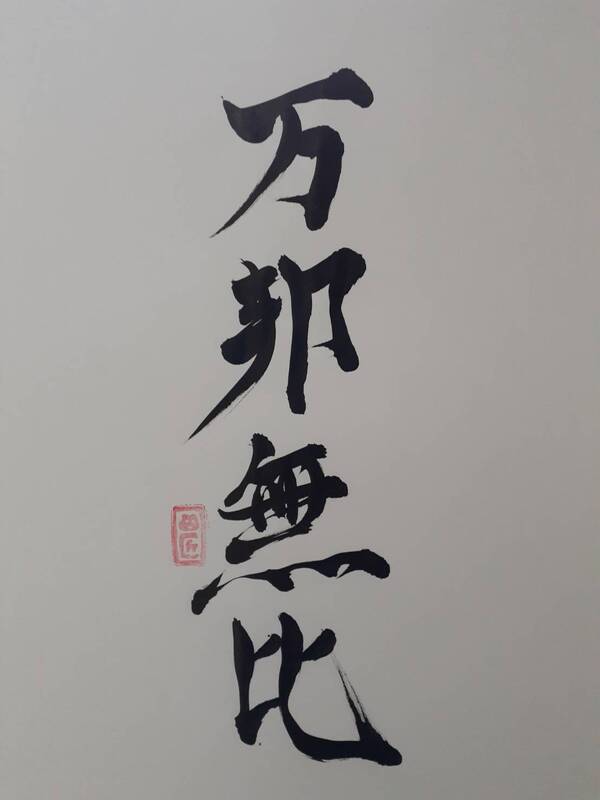 万邦無比